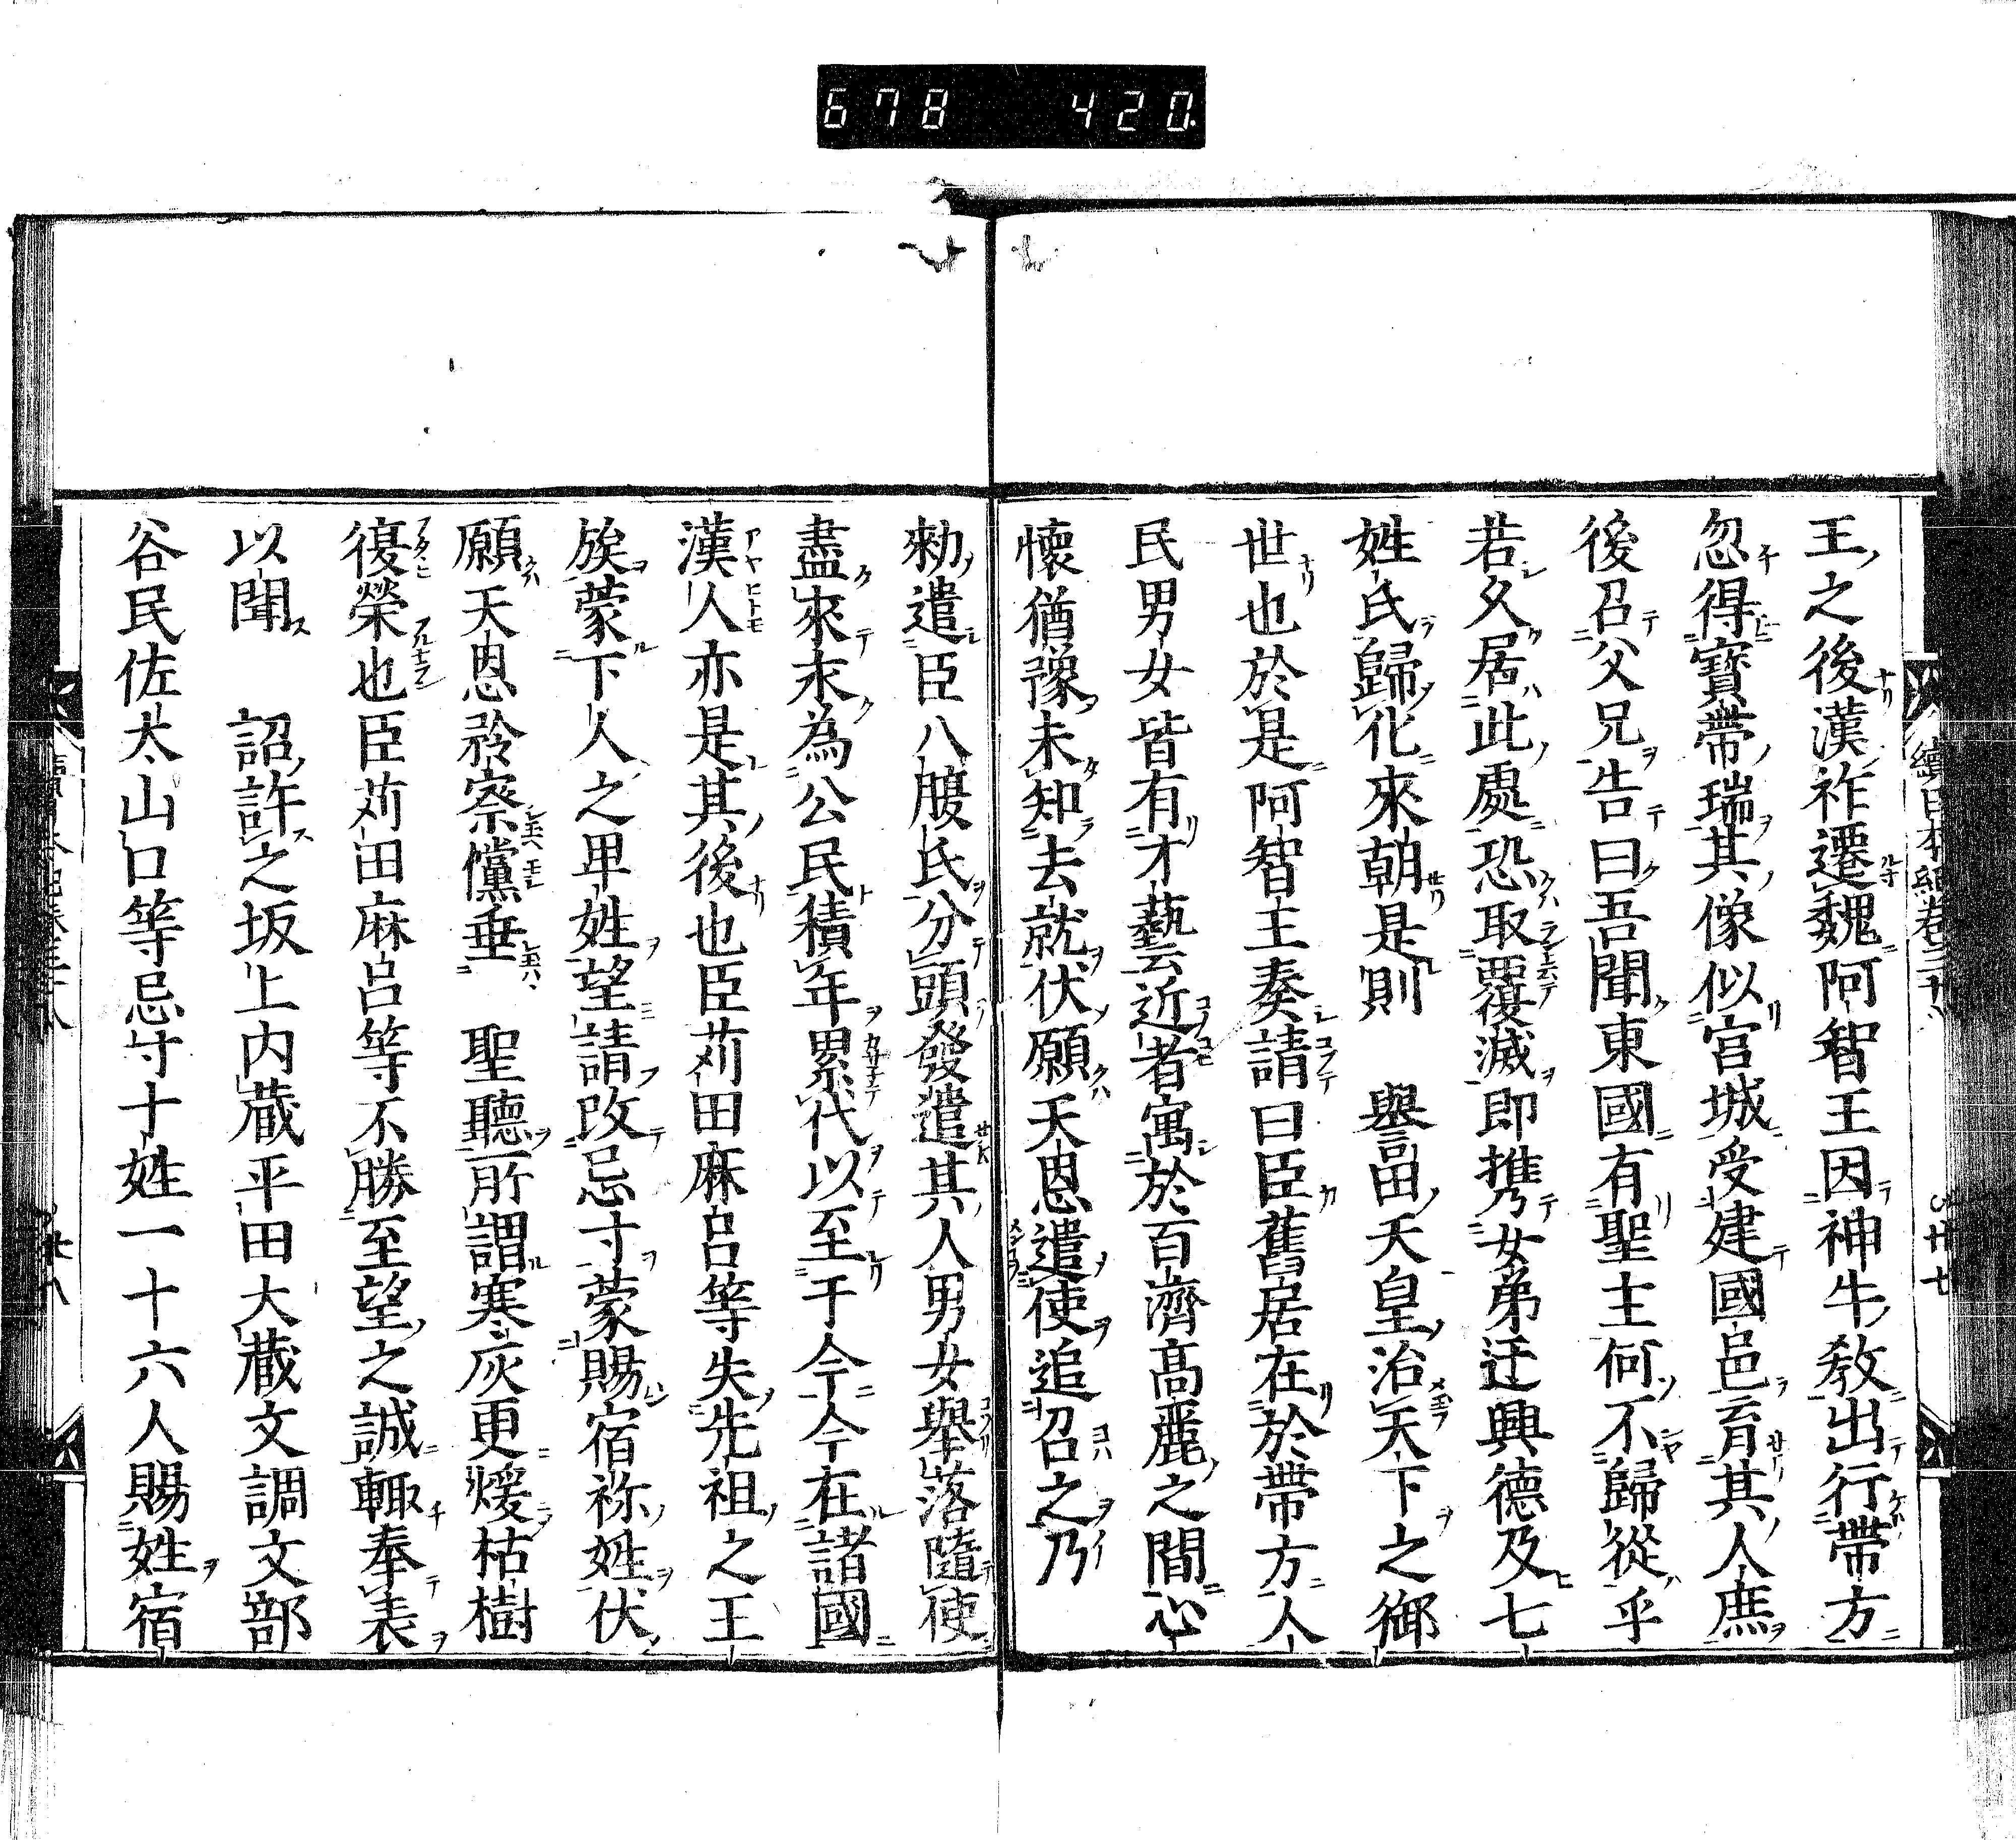 678 420
王之後漢祚遷魏阿智王因神牛教出行帶方
忽得寶帶瑞其像似宮城受建國邑育其人庶
後召父兄告曰吾聞東國有聖主何不歸從乎
若久居此處恐取覆滅即携女弟迂興德及七
姓氏歸化來朝是則 譽田天皇治天下之御
世也於是阿智王奏請曰臣舊居在於帶方人
民男女皆有才藝云近者寓於百濟高麗之間心
懷猶豫未知去就伏願天恩遣使追召之乃
勑遣臣八腹氏分頭發遣其人男女舉落隨使
盡來永為公民積年累代以至于今今在諸國
漢人亦是其後也臣苅田麻呂等失先祖之王
族蒙下人之卑姓望請改忌寸蒙賜宿祢姓伏
願天恩矜察儻垂 聖聽所謂寒灰更煖枯樹
復榮也臣苅田麻呂等不勝至望之誠輙奉表
以聞 詔許之坂上内蔵平田大蔵文調文部
谷民佐太山口等忌寸十姓一十六人賜姓宿